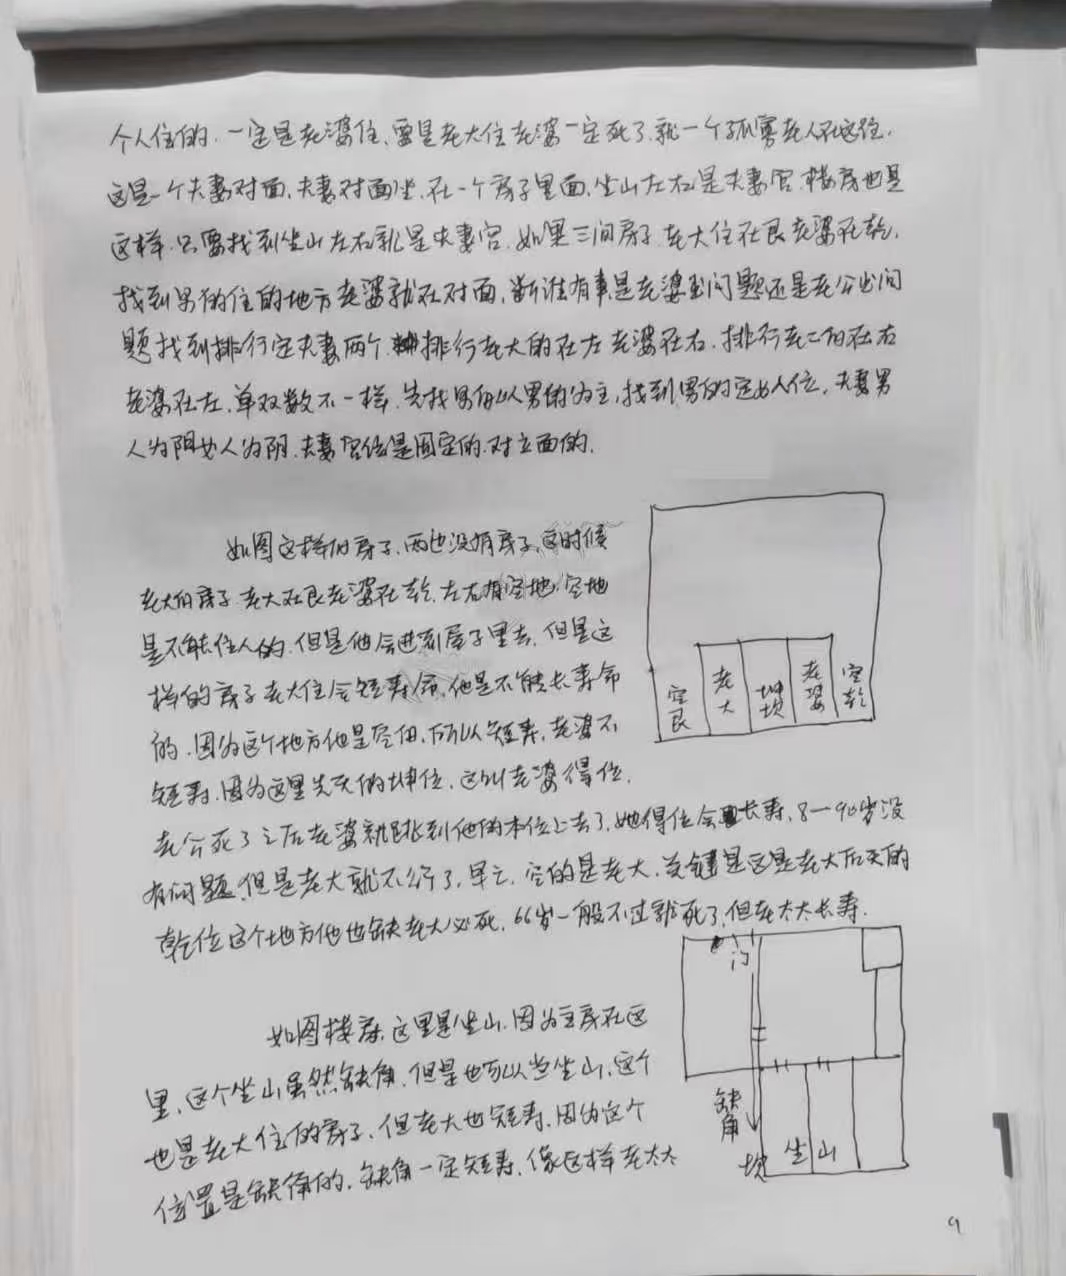 个人住的.一定是老婆住,要是老大住老婆一定死了.就一个孤寡老人在这住.
这是一个夫妻对面.夫妻对面坐.在一个房子里面.坐山左右是夫妻宫.楼房也是
这样.只要找到坐山左右就是夫妻宫.如果三间房子.老大住在艮老婆在乾.
找到男的住的地方老婆就在对面.断谁有事是老婆出问题还是老公出问
题找到排行定夫妻两个.排行老大的在左老婆在右.排行老二的在右
老婆在左.单双数不一样.先找男的以男的为主,找到男的定女人位.夫妻男
人为阳女人为阴.夫妻宫位是固定的.对立面的.
如图这样的房子.两边没有房子.这时候
老大的房子.老大在艮老婆在乾.左右有空地.空地
是不能住人的.但是他会进到屋子里去.但是这
样的房子老大住会短寿命.他是不能长寿命
的.因为这个地方他是空的.所以短寿.老婆不
短寿.因为这里先天的坤位.这叫老婆得位.
老公死了之后老婆就跳到他的本位上去了.她得位会长寿.8一90岁没
有问题.但是老大就不行了.早亡.空的是老大.关键是这是老大后天的
乾位这个地方他也缺老大必死.66岁一般不过就死了.但老太太长寿.
空艮
老大
坤坎
老婆
空乾
如图楼房.这里是坐山.因为主房在这
里.这个坐山虽然缺角.但是也可以当坐山.这个
也是老大住的房子.但老大也短寿.因为这个
位置是缺角的.缺角一定短寿.像这样老太太
门
缺角
坎
坐山
9